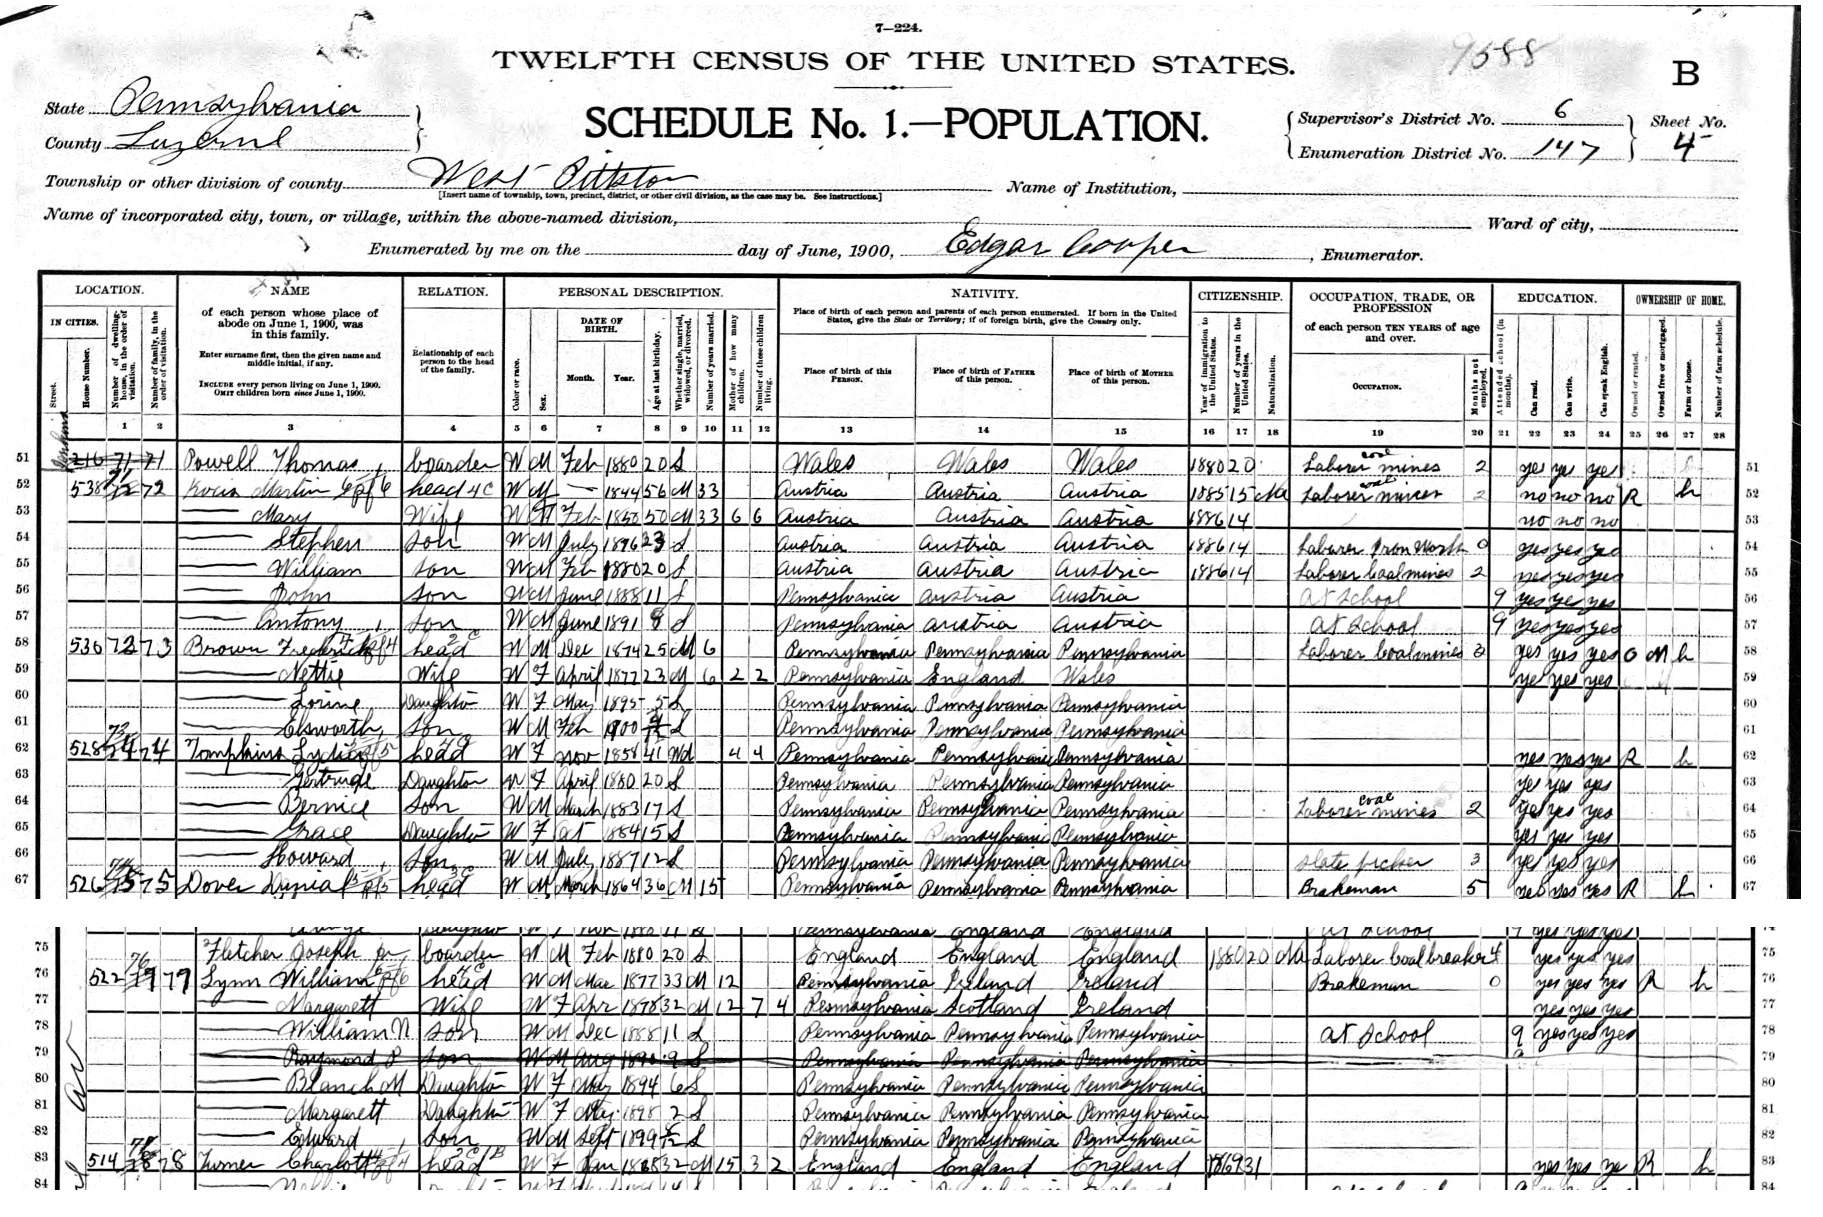 7—224.
TWELFTH CENSUS OF THE UNITED STATES.
9588
B
State Pennsylvania
County Luzerne
SCHEDULE No. 1.—POPULATION.
Supervisor's District No. 6
Enumeration District No. 147
Sheet No. 4
Township or other division of county West Pittston
[Insert name of township, town, precinct, district, or other civil division, as the case may be. See instructions.]
Name of Institution,
Name of incorporated city, town, or village, within the above-named division,
Ward of city,
Enumerated by me on the day of June, 1900, Edgar Cooper, Enumerator.
LOCATION. NAME RELATION. PERSONAL DESCRIPTION. NATIVITY. CITIZENSHIP. OCCUPATION, TRADE, OR PROFESSION EDUCATION. OWNERSHIP OF HOME.
IN CITIES.
Street.
House Number.
Number of dwelling-house, in the order of visitation.
Number of family, in the order of visitation.
of each person whose place of abode on June 1, 1900, was in this family.
Enter surname first, then the given name and middle initial, if any.
INCLUDE every person living on June 1, 1900.
OMIT children born since June 1, 1900.
Relationship of each person to the head of the family.
Color or race.
Sex.
DATE OF BIRTH.
Month. Year.
Age at last birthday.
Whether single, married, widowed, or divorced.
Number of years married.
Mother of how many children.
Number of these children living.
Place of birth of each person and parents of each person enumerated. If born in the United States, give the State or Territory; if of foreign birth, give the Country only.
Place of birth of this PERSON.
Place of birth of FATHER of this person.
Place of birth of MOTHER of this person.
Year of immigration to the United States.
Number of years in the United States.
Naturalization.
of each person TEN YEARS of age and over.
OCCUPATION.
Months not employed.
Attended school (in months).
Can read.
Can write.
Can speak English.
Owned or rented.
Owned free or mortgaged.
Farm or house.
Number of farm schedule.
1 2 3 4 5 6 7 8 9 10 11 12 13 14 15 16 17 18 19 20 21 22 23 24 25 26 27 28
51 216 71 71 Powell Thomas boarder W M Feb 1880 20 S Wales Wales Wales 1880 20 Laborer coal mines 2 yes yes yes 51
52 538 72 72 Martin head W M — 1844 56 M 33 Austria Austria Austria 1885 15 Na Laborer coal mines 2 no no no R h 52
53 — Mary Wife W Feb 1850 50 M 33 6 6 Austria Austria Austria 1886 14 no no no 53
54 — Stephen son W M July 1876 23 S Austria Austria Austria 1886 14 Laborer Iron Works 0 yes yes yes 54
55 — William son W M Feb 1880 20 S Austria Austria Austria 1886 14 Laborer Coal mines 2 yes yes yes 55
56 — John son W M June 1888 11 S Pennsylvania Austria Austria at School 9 yes yes yes 56
57 — Antony son W M June 1891 8 S Pennsylvania Austria Austria at School 9 yes yes yes 57
58 536 73 73 Brown Frederick head W M Dec 1874 25 M 6 Pennsylvania Pennsylvania Pennsylvania Laborer Coal mines yes yes yes O M h 58
59 — Nettie Wife W F April 1877 23 M 6 2 2 Pennsylvania England Wales yes yes yes 59
60 — Lorine Daughter W F May 1895 5 S Pennsylvania Pennsylvania Pennsylvania 60
61 — Elsworth son W M Feb 1900 S Pennsylvania Pennsylvania Pennsylvania 61
62 528 74 74 Tompkins Lydia head W F Nov 1858 41 Wd 4 4 Pennsylvania Pennsylvania Pennsylvania yes yes yes R h 62
63 — Gertrude Daughter W F April 1880 20 S Pennsylvania Pennsylvania Pennsylvania yes yes yes 63
64 — Bernice Son W M March 1883 17 S Pennsylvania Pennsylvania Pennsylvania Laborer coal mines 2 yes yes yes 64
65 — Grace Daughter W F Oct 1884 15 S Pennsylvania Pennsylvania Pennsylvania yes yes yes 65
66 — Howard Son W M July 1887 12 S Pennsylvania Pennsylvania Pennsylvania slate picker 3 yes yes yes 66
67 526 75 75 Dover Danial head W M March 1864 36 M 15 Pennsylvania Pennsylvania Pennsylvania Brakeman 5 yes yes yes R h 67
Daughter Pennsylvania England England at School 9 yes yes yes
75 Fletcher Joseph boarder W M Feb 1880 20 S England England England 1880 20 Na Laborer Coal breaker 4 yes yes yes 75
76 522 79 Lynn William head W M Mar 1877 33 M 12 Pennsylvania Ireland Ireland Brakeman 0 yes yes yes R h 76
77 — Margarett Wife W F Apr 1878 32 M 12 7 4 Pennsylvania Scotland Ireland yes yes yes 77
78 — William N son W M Dec 1888 11 S Pennsylvania Pennsylvania Pennsylvania at School 9 yes yes yes 78
79 — Raymond P son W M Aug 1890 9 S Pennsylvania Pennsylvania Pennsylvania 79
80 — Blanch M Daughter W F May 1894 6 S Pennsylvania Pennsylvania Pennsylvania 80
81 — Margarett Daughter W F May 1898 2 S Pennsylvania Pennsylvania Pennsylvania 81
82 — Edward son W M Sept 1899 S Pennsylvania Pennsylvania Pennsylvania 82
83 514 78 78 Turner Charlott head W F Jan 1868 32 M 15 3 2 England England England 1869 31 yes yes yes R h 83
84 84